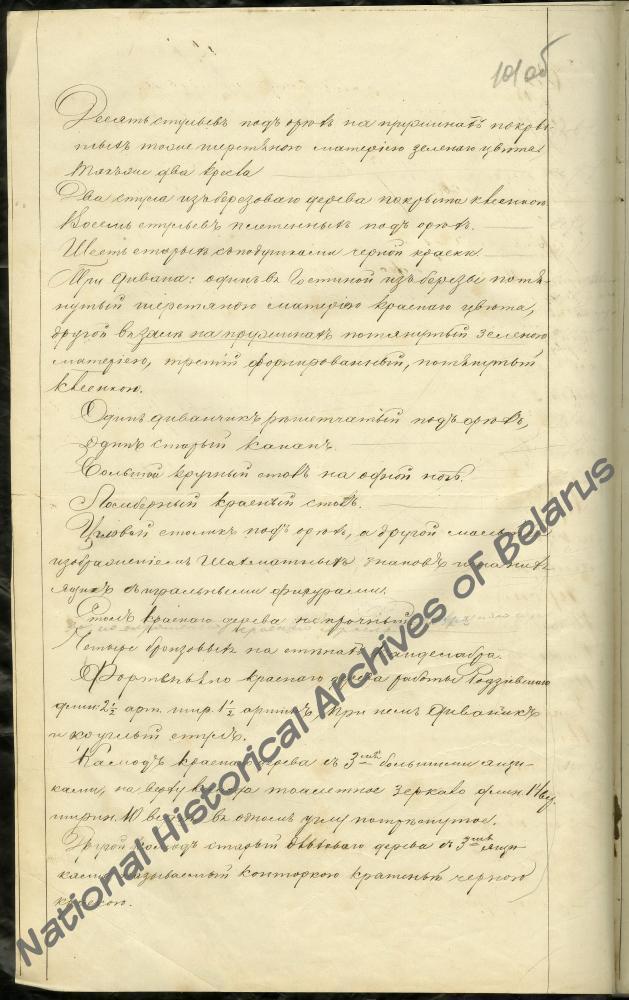 101 об
Десять стульевъ подъ орѣхъ на пружинахъ покры-
тыхъ тоже шерстяною матеріею зеленаго цвѣта
такъже два кресла
Два стула изъ березоваго дерева покрыта клеенкою.
Восемь стульевъ плетенныхъ подъ орѣхъ.
Шесть старыхъ съ подушками черной краски.
Три дивана: одинъ въ Гостиной изъ березы потя-
нутый шерстяною матеріею краснаго цвѣта,
другой въ залѣ на пружинахъ потянутый зеленою
матеріею, третій форнированный, потянутый
клеенкою.
Одинъ диванчикъ рѣшетчатый подъ орѣхъ,
одинъ старый канап
Большой круглый столъ на одной ногѣ.
Ломберный красный столъ.
Угловой столикъ подъ орѣхъ, а другой
изображеніемъ Шахматныхъ знаковъ и на нихъ
ящикъ съ игральными фигурами.
Столъ краснаго дерева не прочный
Четыре бронзовыхъ на стѣнахъ канделабра.
Фортепьяно краснаго дерева работы
длин. 2½ арш. шир. 1½ аршинъ, при немъ диванчикъ
и круглый стулъ.
Камодъ краснаго дерева съ 3мя большими ящи-
ками, на верху туалетное зеркало длин. 14 вер.
ширин. 10 вер. въ одномъ углу потреснутое.
Другой комодъ старый дерева съ 3мя ящи-
ками называемый конторкою крашеный черною
краскою.
National Historical Archives of Belarus